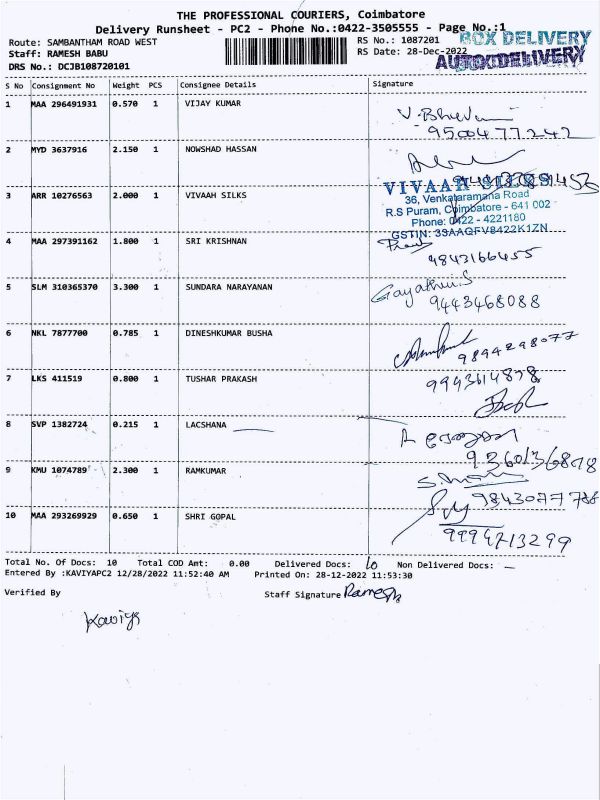 THE PROFESSIONAL COURIERS, Coimbatore
Delivery Runsheet - PC2 - Phone No.:0422-3505555 - Page No.:1
Route: SAMBANTHAM ROAD WEST RS No.: 1087201 BOX DELIVERY
Staff: RAMESH BABU RS Date: 28-Dec-2022
DRS No.: DCJB108720101
S No Consignment No Weight PCS Consignee Details Signature
1 MAA 296491931 0.570 1 VIJAY KUMAR
9500477242
2 MYD 3637916 2.150 1 NOWSHAD HASSAN
3 ARR 10276563 2.000 1 VIVAAH SILKS VIVAAH SILKS
36, Venkataramana Road
R.S Puram, Coimbatore - 641 002
Phone: 0422 - 4221180
GSTIN: 33AAQFV8422K1ZN
4 MAA 297391162 1.800 1 SRI KRISHNAN
9843166455
5 SLM 310365370 3.300 1 SUNDARA NARAYANAN Gayathiri.S
9443468088
6 NKL 7877700 0.785 1 DINESHKUMAR BUSHA
9894298077
7 LKS 411519 0.800 1 TUSHAR PRAKASH 9943614878
8 SVP 1382724 0.215 1 LACSHANA
9360136878
9 KMU 1074789 2.300 1 RAMKUMAR
9843077788
10 MAA 293269929 0.650 1 SHRI GOPAL
9994713299
Total No. Of Docs: 10 Total COD Amt: 0.00 Delivered Docs: 10 Non Delivered Docs: —
Entered By :KAVIYAPC2 12/28/2022 11:52:40 AM Printed On: 28-12-2022 11:53:30
Verified By Staff Signature Ramesh
Kaviya